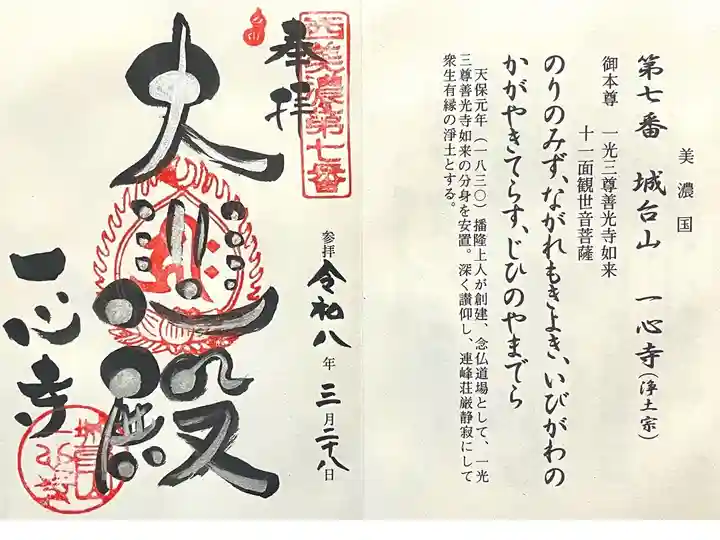 美濃国
第七番 城台山 一心寺（浄土宗）
御本尊 一光三尊善光寺如来
十一面観世音菩薩
のりのみず、ながれもきよき、いびがわの
かがやきてらす、じひのやまでら
天保元年（一八三〇）播隆上人が創建、念仏道場として、一光
三尊善光寺如来の分身を安置。深く讃仰し、連峰荘厳静寂にして
衆生有縁の浄土とする。
西美濃第七番
奉拝
大悲殿
参拝 令和八年三月二十八日
一心寺